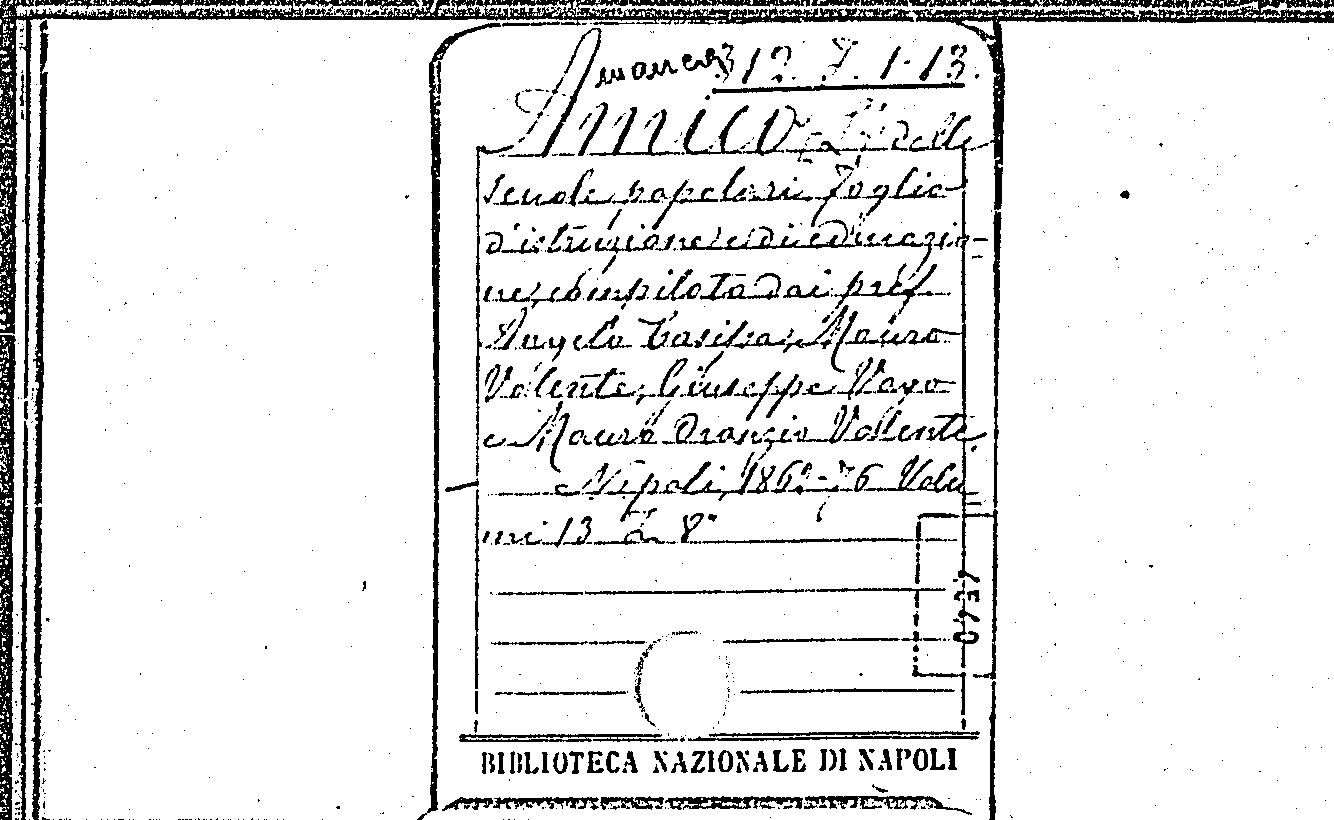 12. 7. 1-13.
Amico (L') delle
scuole popolari. Foglio
d'istruzione e di educazio=
ne, compilata dai prof.
Angelo Mauro
Valente, Giuseppe Vago
e Mauro Oronzio Valente.
Napoli, 1862-76 Volu=
mi 13 in 8°
0737
BIBLIOTECA NAZIONALE DI NAPOLI